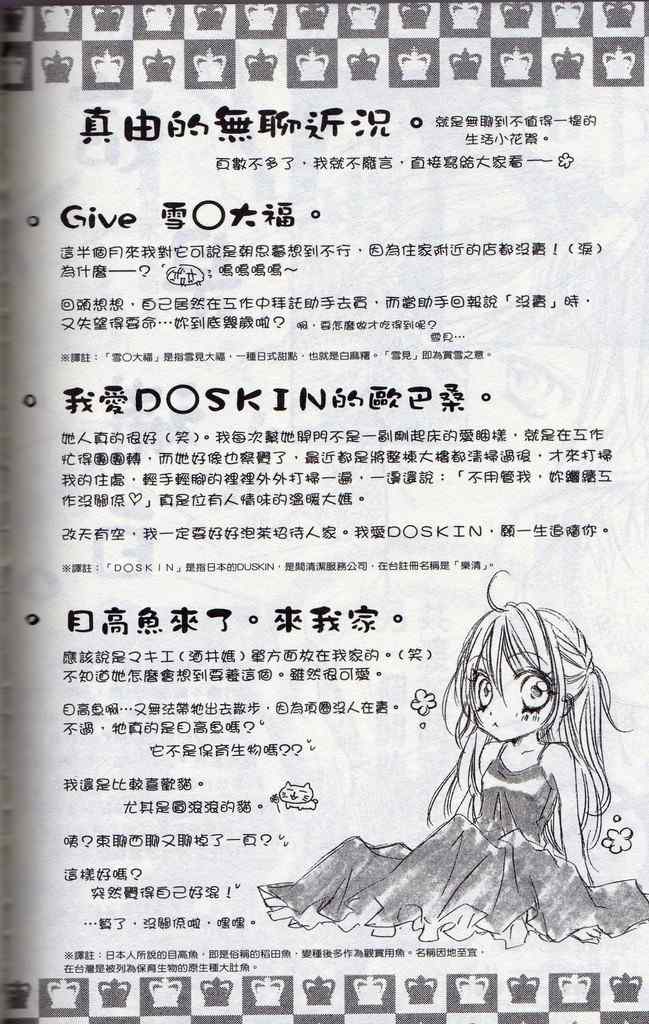 真由的無聊近況。就是無聊到不值得一提的
生活小花絮。
頁數不多了，我就不廢言，直接寫給大家看——
Give 雪〇大福。
這半個月來我對它可說是朝思暮想到不行，因為住家附近的店都沒賣！（淚）
為什麼——？嗚嗚嗚嗚～
回頭想想，自己居然在工作中拜託助手去買，而當助手回報說「沒賣」時，
又失望得要命…妳到底幾歲啦？ 啊，要怎麼做才吃得到呢？
雪見…
※譯註：「雪〇大福」是指雪見大福，一種日式甜點，也就是白麻糬。「雪見」即為賞雪之意。
我愛D〇SKIN的歐巴桑。
她人真的很好（笑）。我每次幫她開門不是一副剛起床的愛睏樣，就是在工作
忙得團團轉，而她好像也察覺了，最近都是將整棟大樓都清掃過很，才來打掃
我的住處，輕手輕腳的裡裡外外打掃一遍，一邊還說：「不用管我，妳繼續工
作沒關係♡」真是位有人情味的溫暖大媽。
改天有空，我一定要好好泡茶招待人家。我愛DOSKIN，願一生追隨你。
※譯註：「DOSKIN」是指日本的DUSKIN，是間清潔服務公司，在台註冊名稱是「樂清」。
目高魚來了。來我家。
應該說是マキエ（酒井媽）單方面放在我家的。（笑）
不知道她怎麼會想到要養這個。雖然很可愛。
目高魚啊…又無法帶牠出去散步，因為項圈沒人在賣。
不過，牠真的是目高魚嗎？
它不是保育生物嗎？？
我還是比較喜歡貓。
尤其是圓滾滾的貓。
咦？東聊西聊又聊掉了一頁？
這樣好嗎？
突然覺得自己好混！
…算了，沒關係啦，嘿嘿。
※譯註：日本人所說的目高魚，即是俗稱的稻田魚，變種後多作為觀賞用魚。名稱因地至宜，
在台灣是被列為保育生物的原生種大肚魚。